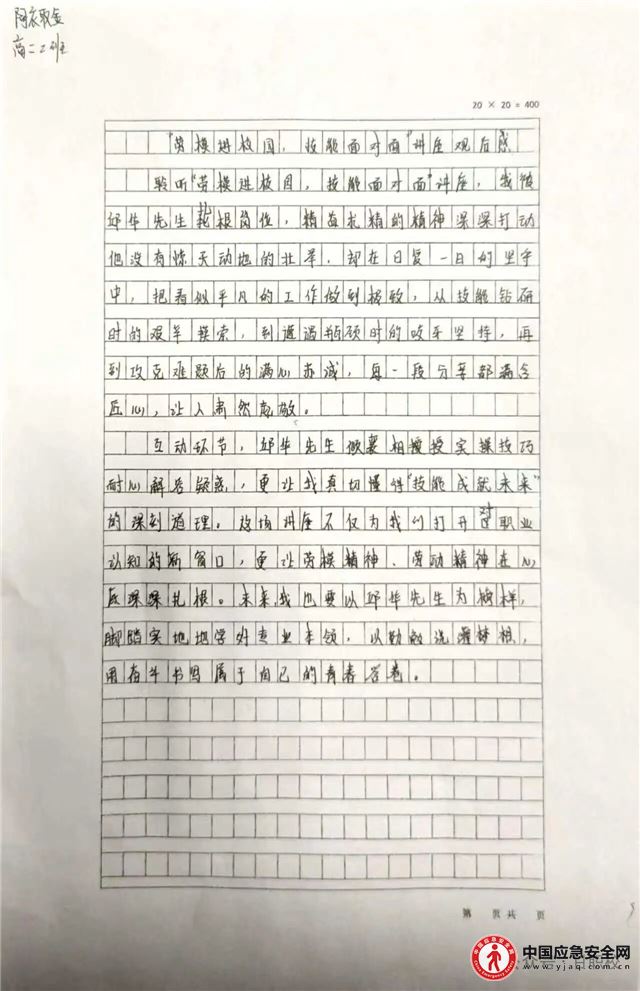 阿衣取金
高二2班
20 × 20 = 400
"劳模进校园，技能面对面"讲座观后感
聆听"劳模进校园，技能面对面"讲座，我被
邱华先生扎根岗位，精益求精的精神深深打动
他没有惊天动地的壮举，却在日复一日的坚守
中，把看似平凡的工作做到极致，从技能钻研
时的艰辛摸索，到遭遇瓶颈时的咬牙坚持，再
到攻克难题后的满心赤诚，每一段分享都满含
匠心，让人肃然起敬。
互动环节，邱华先生倾囊相授实操技巧
耐心解答疑惑，更让我真切懂得"技能成就未来"
的深刻道理。这场讲座不仅为我们打开对职业
认知的新窗口，更让劳模精神、劳动精神在心
底深深扎根。未来，我也要以邱华先生为榜样，
脚踏实地地学好专业本领，以勤敏浇灌梦想，
用奋斗书写属于自己的青春答卷。
第 页 共 页
中国应急安全网
www.yjaq.com.cn